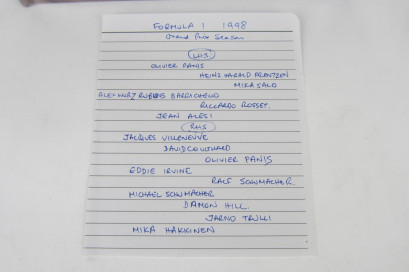 FORMULA 1 1998
Grand Prix Season
LHS
OLIVIER PANIS
HEINZ HARALD FRENTZEN
MIKA SALO
BARRICHELLO
RICCARDO ROSSET.
JEAN ALESI
RHS
JACQUES VILLENEUVE
DAVID COULTHARD
OLIVIER PANIS
EDDIE IRVINE
RALF SCHUMACHER.
MICHAEL SCHUMACHER
DAMON HILL.
JARNO TRULLI
MIKA HAKKINEN